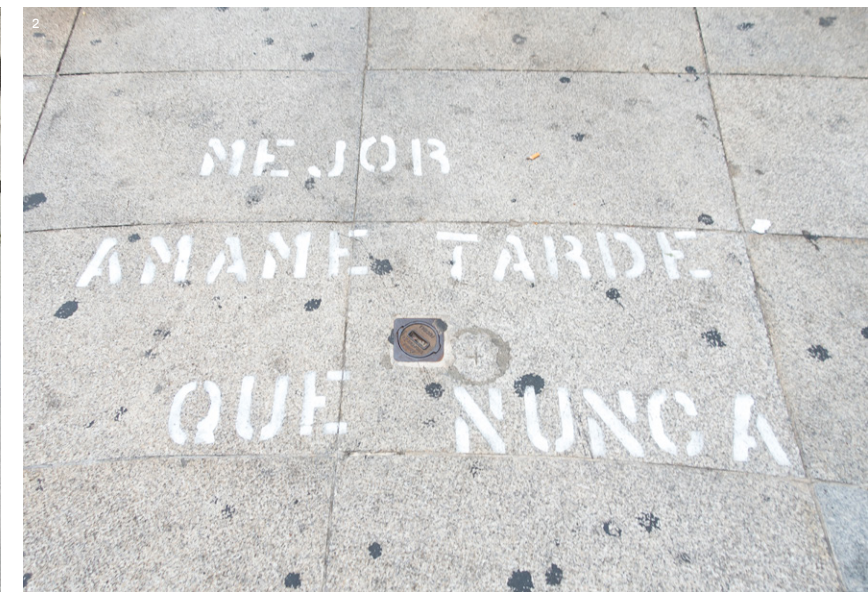 2
MEJOR
AMAME TARDE
QUE NUNCA